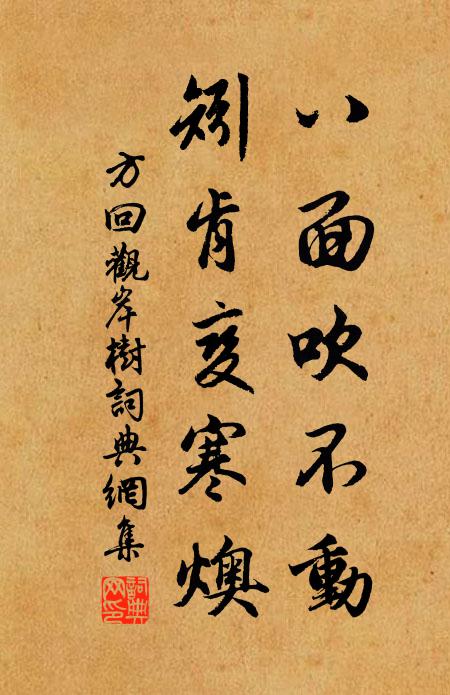 八面吹不動
矧肯变寒燠
方回觀岸樹詞典網集
詞典網印